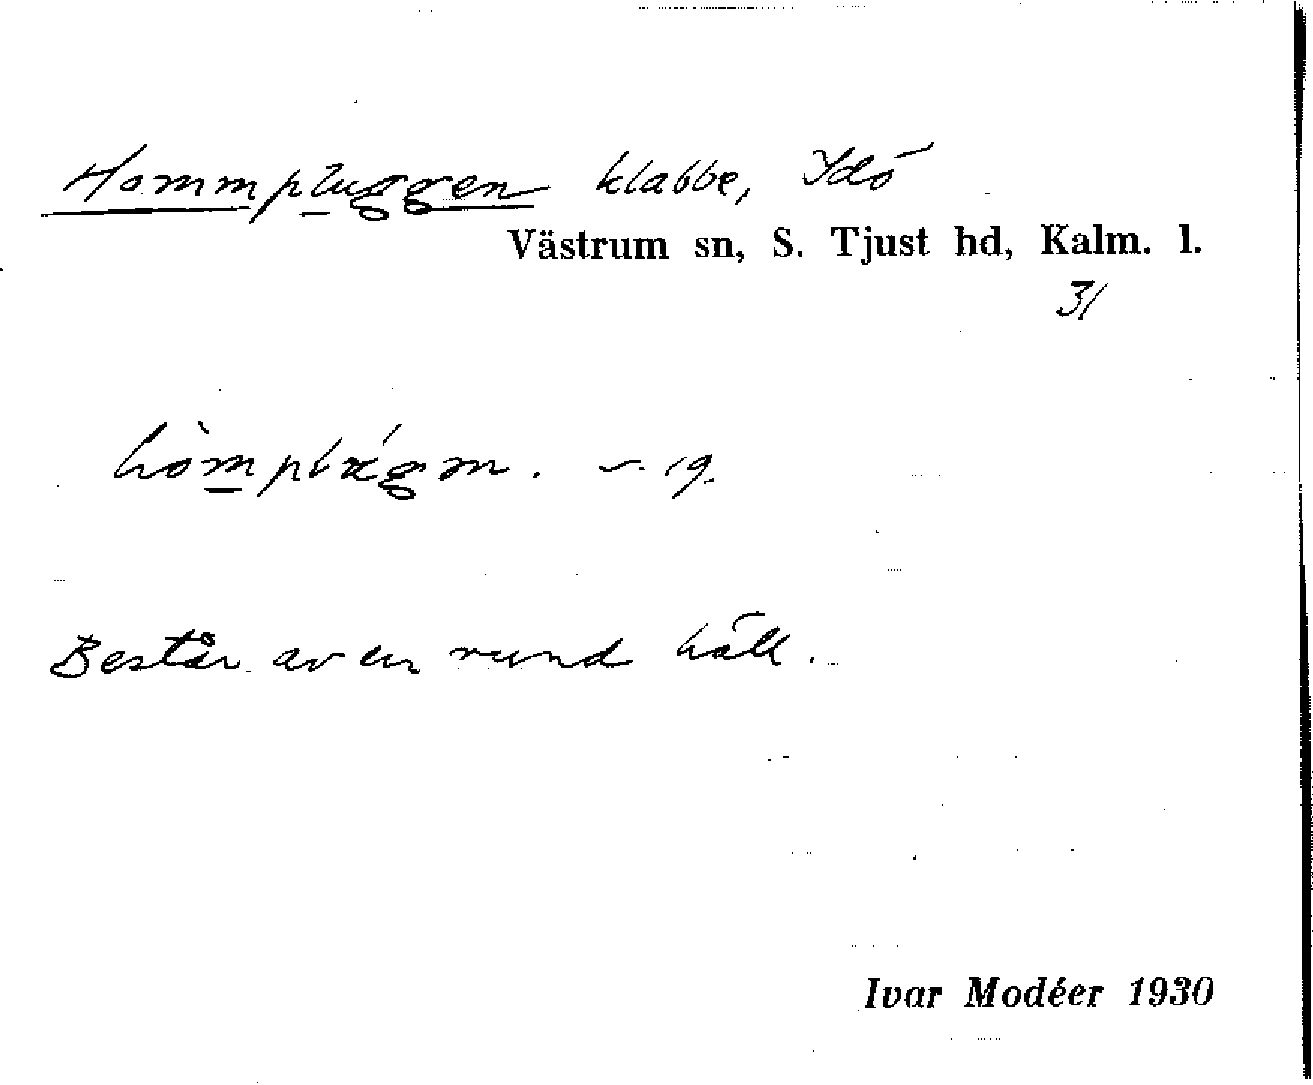 Hommpluggen klabbe, Idö
Västrum sn, S. Tjust hd, Kalm. l.
31
19.
Består av en rund häll.
Ivar Modéer 1930